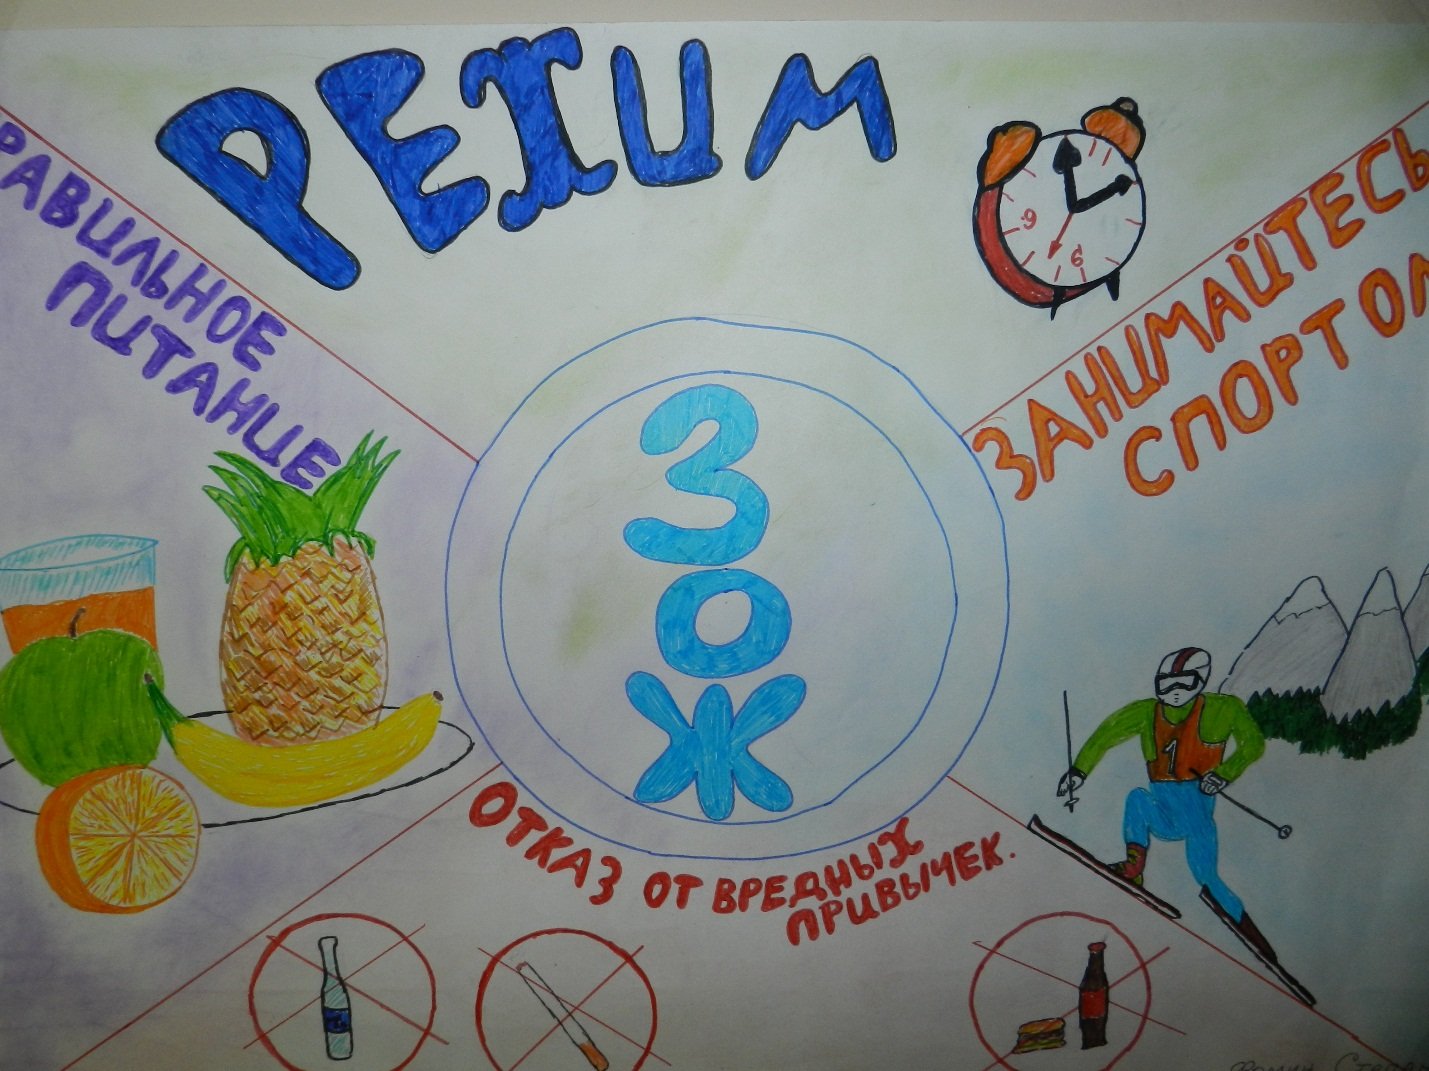 РЕЖИМ
РАВИЛЬНОЕ
ПИТАНИЕ
ЗАНИМАЙТЕСЬ
СПОРТОМ
9
6
ЗОЖ
1
ОТКАЗ ОТ ВРЕДНЫХ
ПРИВЫЧЕК.